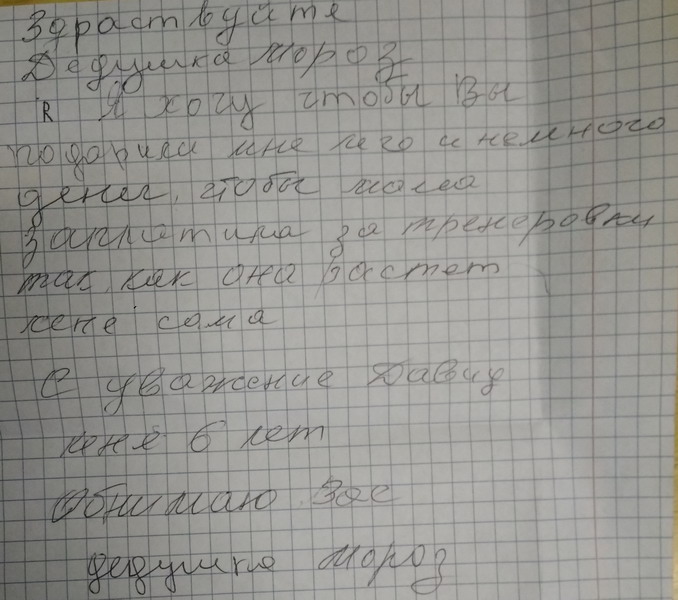 Здраствуйте
Дедушка мороз
R Я хочу чтобы Вы
подарили мне лего и немного
денег, чтобы мама
заплатила за тренеровки
так как она растет
меня сама
С уважение Давид
мене 6 лет
Обнимаю Вас
дедушка мороз